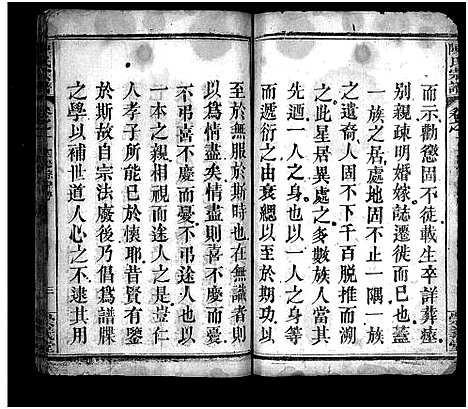 陳氏宗譜
而示勸懲固不徒載生卒詳葬瘞
別親疎明婚嫁誌遷徙而已也蓋
一族之居處地固不止一隅一族
之遺裔人固不下千百脫推而溯
之此星居異處之多數族人當其
始五一人之身也以一人之身等
而遞衍之由衰緦以至於期功以
至於無服於斯時也在無識者則
以爲情盡矣情盡則喜不慶而憂
不弔喜不慶而憂不弔吾觀其以
一本之親相視而途人之是豈仁
人孝子所能已於懷耶昔賢有鑒
於斯故自宗法廢後乃倡爲譜牒
之學以補世道人心之不逮其用